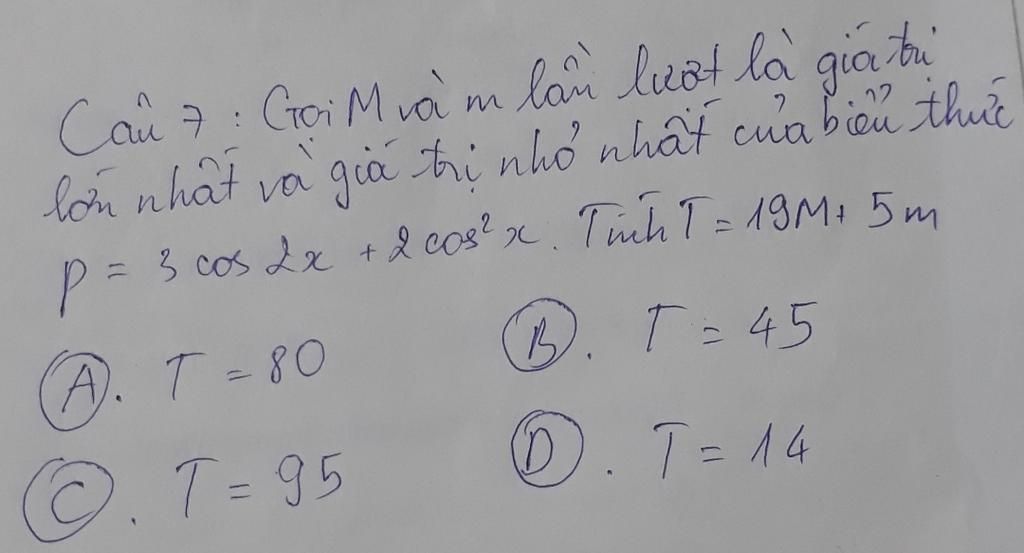 Câu 7 : Gọi M và m lần lượt là giá trị
lớn nhất và giá trị nhỏ nhất của biểu thức
P = 3 cos 2x + 2 cos² x . Tính T = 19M + 5m
A. T = 80 B. T = 45
C. T = 95 D. T = 14